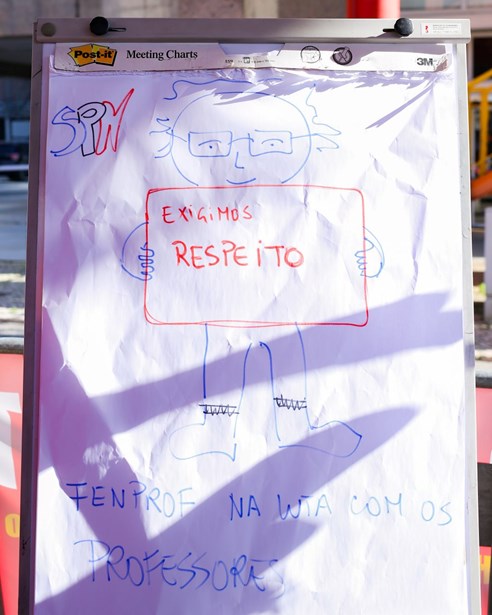 Post-it Meeting Charts
3M
SPN
EXIGIMOS
RESPEITO
FENPROF NA LUTA COM OS
PROFESSORES